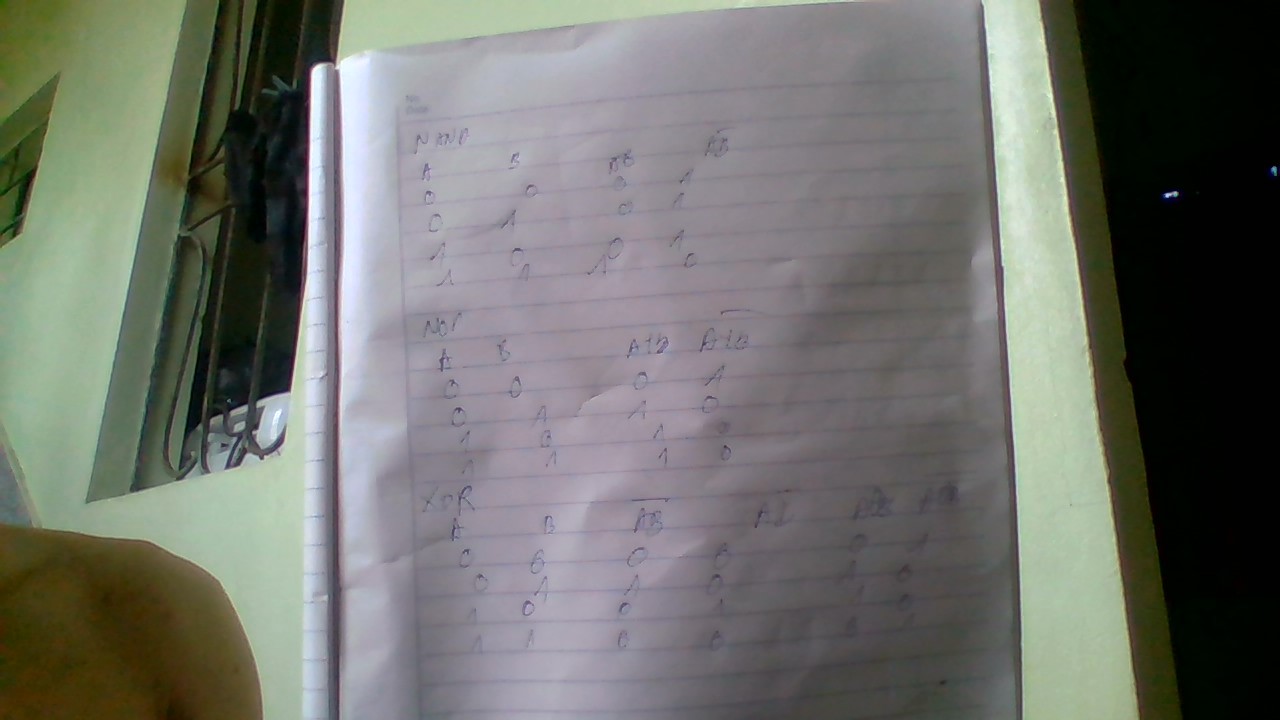 No.
Date
NAND
A B AB A̅B̅
0 0 0 1
0 1 0 1
1 0 0 1
1 1 1 0
Nor
A B A+B A̅+̅B̅
0 0 0 1
0 1 1 0
1 0 1 0
1 1 1 0
XOR
A B A̅B̅
0 0 0 0 0 1
0 1 1 0 1 0
1 0 0 1 1 0
1 1 0 0 0 1